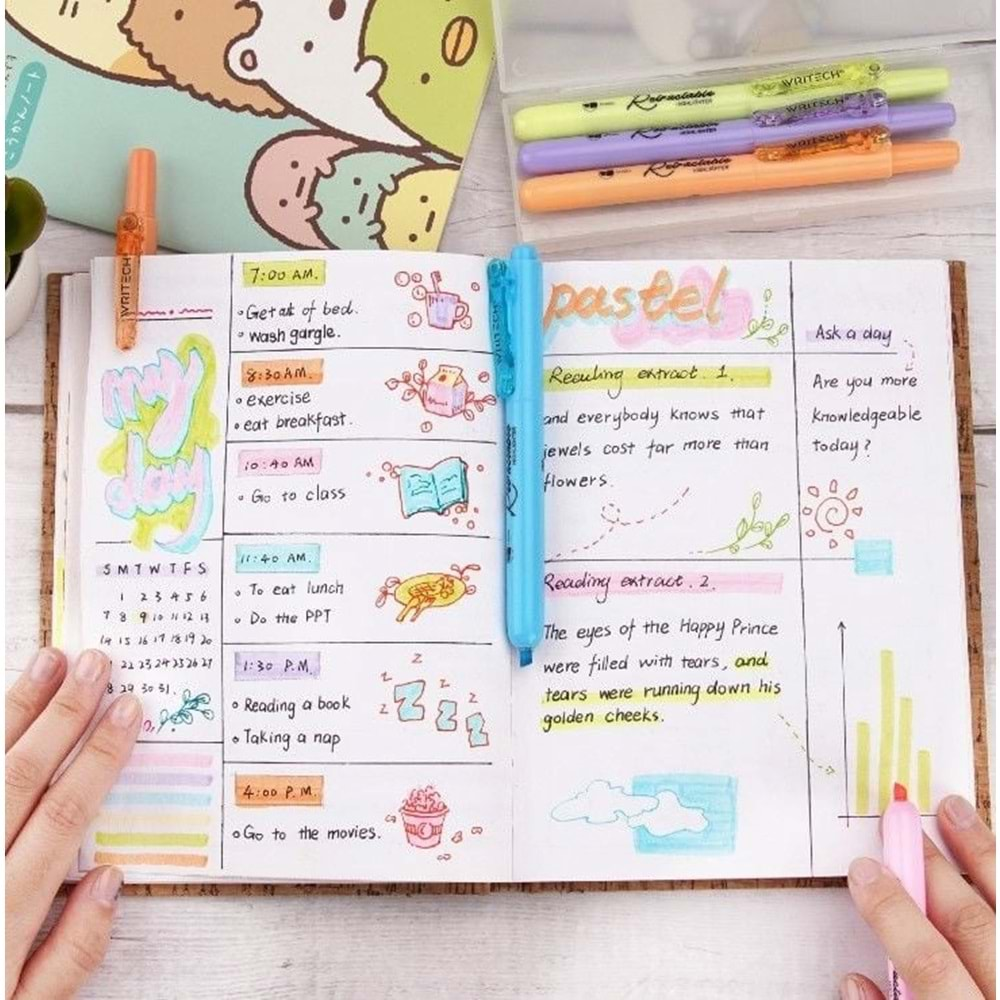 こうかんノート
WRITECH
Retractable
HIGHLIGHTER
WRITECH
Retractable
HIGHLIGHTER
WRITECH
Retractable
HIGHLIGHTER
WRITECH
my
day
S M T W T F S
1 2 3 4 5 6
7 8 9 10 11 12 13
14 15 16 17 18 19 20
22 23 24 25 26 27
28 29 30 31.
7:00 AM.
Get out of bed.
wash gargle.
8:30 AM.
exercise
eat breakfast.
10:40 AM
Go to class
11:40 AM.
To eat lunch
Do the PPT
1:30 P.M.
Reading a book
Taking a nap
z z z Z Z Z
4:00 P.M.
Go to the movies.
WRITECH
Retractable
HIGHLIGHTER
pastel
Reading extract. 1.
and everybody knows that
jewels cost far more than
flowers.
Reading extract. 2.
The eyes of the Happy Prince
were filled with tears, and
tears were running down his
golden cheeks.
Ask a day
Are you more
knowledgeable
today?